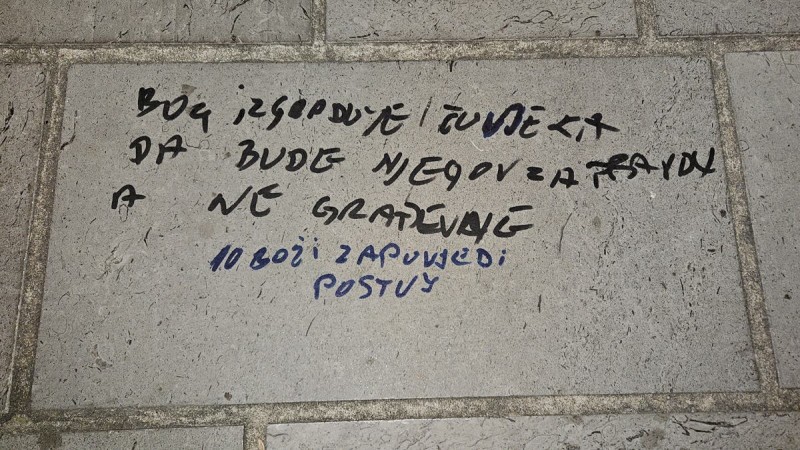 BOG IZGORDUJE ČOVJEKA
DA BUDE NJEGOV ZA
A NE GRAĐEVINE
10 BOŽI ZAPOVJEDI
POSTUJ